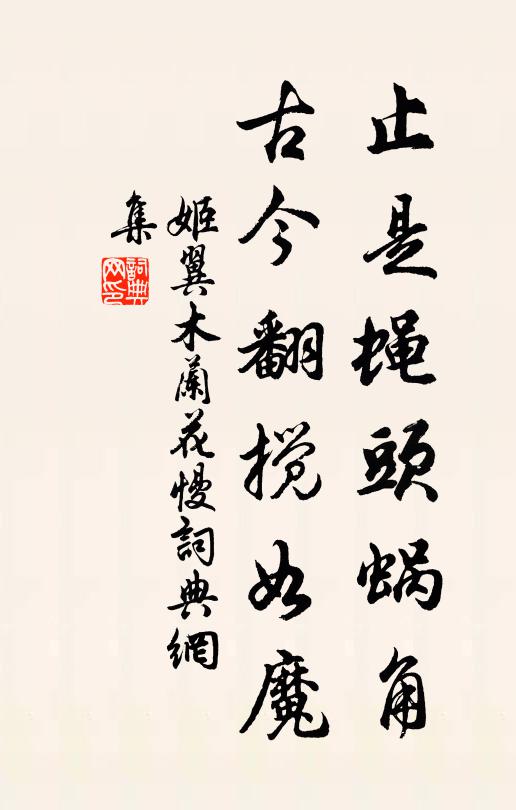 止是蝇頭蜗角
古今翻搅如魔
姬翼木蘭花慢詞典網
集
詞典網印